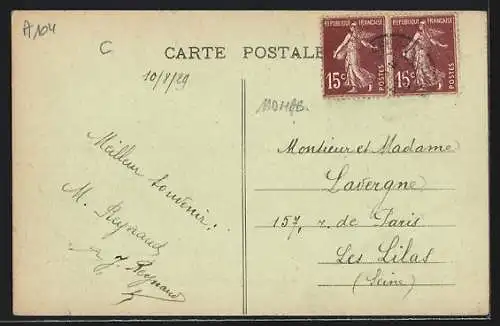 A104
C
CARTE POSTALE
REPUBLIQUE FRANÇAISE
15c POSTES
REPUBLIQUE FRANÇAISE
15c POSTES
10/8/29
Meilleur souvenir.
M. Reynaud
J. Reynaud
Montsieur et Madame
Lavergne
157, r. de Paris
Les Lilas
(Seine)